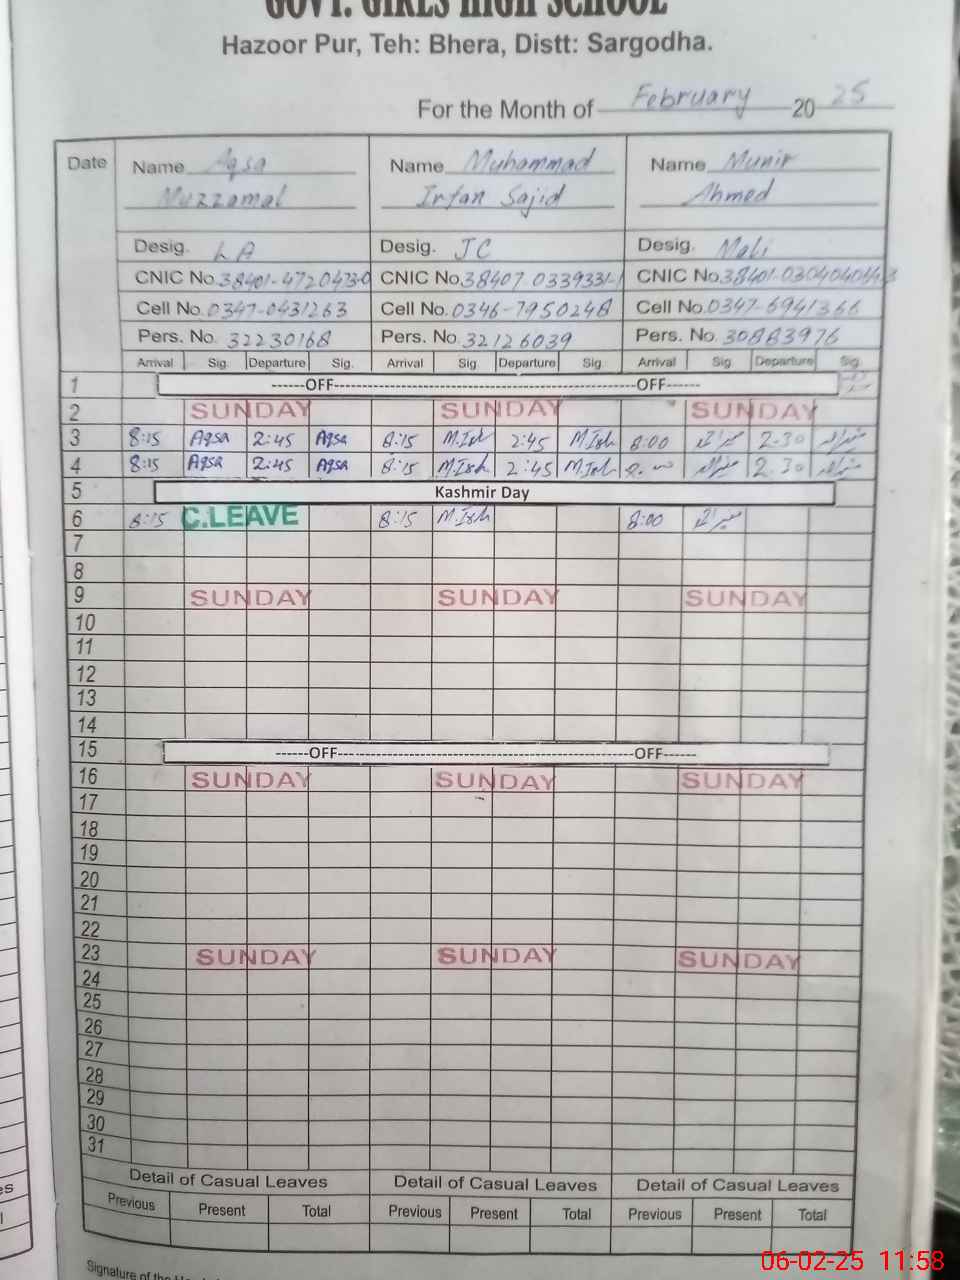 GOVT. GIRLS HIGH SCHOOL
Hazoor Pur, Teh: Bhera, Distt: Sargodha.
For the Month of February 2025
Date Name Aqsa Name Muhammad Name Munir
Muzzamal Irfan Sajid Ahmed
Desig. LA Desig. JC Desig. Mali
CNIC No. 38401-4720473-0 CNIC No. 38407-0339331-1 CNIC No.
Cell No. 0347-0431263 Cell No. 0346-7950248 Cell No. 0347-6941366
Pers. No. 32230168 Pers. No. 32126039 Pers. No. 30883976
Arrival Sig. Departure Sig. Arrival Sig. Departure Sig. Arrival Sig. Departure Sig.
1 ------OFF------ ------OFF------
2 SUNDAY SUNDAY SUNDAY
3 8:15 Aqsa 2:45 Aqsa 8:15 M.Ish 2:45 M.Ish 8:00 2.30
4 8:15 Aqsa 2:45 Aqsa 8:15 M.Ish 2:45 M.Ish 8:00 2.30
5 Kashmir Day
6 8:15 C.LEAVE 8:15 M.Ish 8:00
7
8
9 SUNDAY SUNDAY SUNDAY
10
11
12
13
14
15 ------OFF------ ------OFF------
16 SUNDAY SUNDAY SUNDAY
17
18
19
20
21
22
23 SUNDAY SUNDAY SUNDAY
24
25
26
27
28
29
30
31
Detail of Casual Leaves Detail of Casual Leaves Detail of Casual Leaves
Previous Present Total Previous Present Total Previous Present Total
Signature of the
06-02-25 11:58